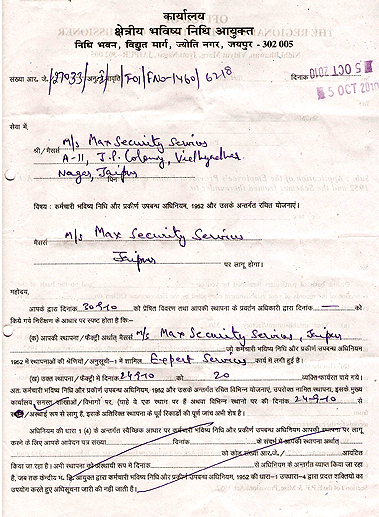 कार्यालय
क्षेत्रीय भविष्य निधि आयुक्त
निधि भवन, विद्युत मार्ग, ज्योति नगर, जयपुर - 302 005
संख्या आर. जे. /27033/ /FNo-1460/6218 दिनांक 5 OCT 2010
5 OCT 2010
सेवा में,
श्री/मैसर्स M/s Max Security Servius
A-11, J.P. Colony, Vidhyadhar
Nagar, Jaipur पिन
विषय : कर्मचारी भविष्य निधि और प्रकीर्ण उपबन्ध अधिनियम, 1952 और उसके अन्तर्गत रचित योजनाएं।
मैसर्स M/s Max Security Servius
Jaipur पर लागू होगा।
महोदय,
आपके द्वारा दिनांक 30-9-10 को प्रेषित विवरण तथा आपकी स्थापना के प्रवर्तन अधिकारी द्वारा दिनांक — को
किये गये निरीक्षण के आधार पर स्पष्ट होता है कि:-
(क) आपकी स्थापना/फैक्ट्री अर्थात मैसर्स M/s Max Security Servius, Jaipur
जो कर्मचारी भविष्य निधि और प्रकीर्ण उपबन्ध अधिनियम
1952 में स्थापनाओं की श्रेणीयों/अनुसूची-1 में शामिल Expert Servius कार्य में लगी हुई है।
(ख) उक्त स्थापना/फैक्ट्री में दिनांक 24-9-10 को 20 व्यक्ति कार्यरत पाये गये।
अत: कर्मचारी भविष्य निधि अधिनियम, 1952 और उसके अन्तर्गत रचित विभिन्न योजनाएं, उपरोक्त नामित स्थापना, इसके मुख्य
कार्यालय, समस्त शाखाओं/विभागों पर, (चाहे वे एक स्थान पर हैं अथवा विभिन्न स्थानों पर) की दिनांक 24-9-10 से
अस्थाई रूप से लागू है, इसके अतिरिक्त स्थापना के पूर्व रिकार्डों की पूर्ण जांच अभी शेष है।
अधिनियम की धारा 1 (4) के अन्तर्गत स्वैच्छिक आधार पर कर्मचारी भविष्य निधि और प्रकीर्ण उपबन्ध अधिनियम आपकी स्थापना पर लागू
करने के लिए आपके आवेदन पर संख्या दिनांक के संदर्भ में आपकी स्थापना अर्थात्
को कोड संख्या आर.जे./ आवंटित
किया जा रहा है। अभी स्थापना को अस्थायी रूप में दिनांक से अधिनियम के अन्तर्गत व्याप्त किया जा रहा
है, जब तक केन्द्रीय भ. नि. आयुक्त द्वारा कर्मचारी भविष्य निधि और प्रकीर्ण उपबन्ध अधिनियम, 1952 की धारा-1 उपधारा-4 द्वारा प्रदत्त शक्तियों का
उपयोग करते हुए अधिसूचना जारी की नही जाती है।